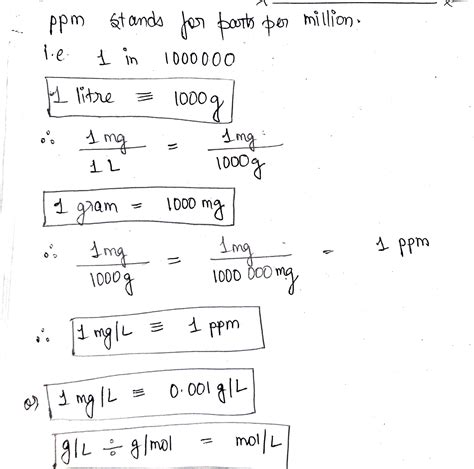 ppm stands for parts per million.
i.e 1 in 1000000
1 litre ≡ 1000g
∴ 1 mg / 1 L = 1mg / 1000g
1 gram = 1000 mg
∴ 1mg / 1000g = 1mg / 1000 000 mg = 1 ppm
∴ 1 mg/L ≡ 1 ppm
or 1 mg/L ≡ 0.001 g/L
g/L ÷ g/mol = mol/L